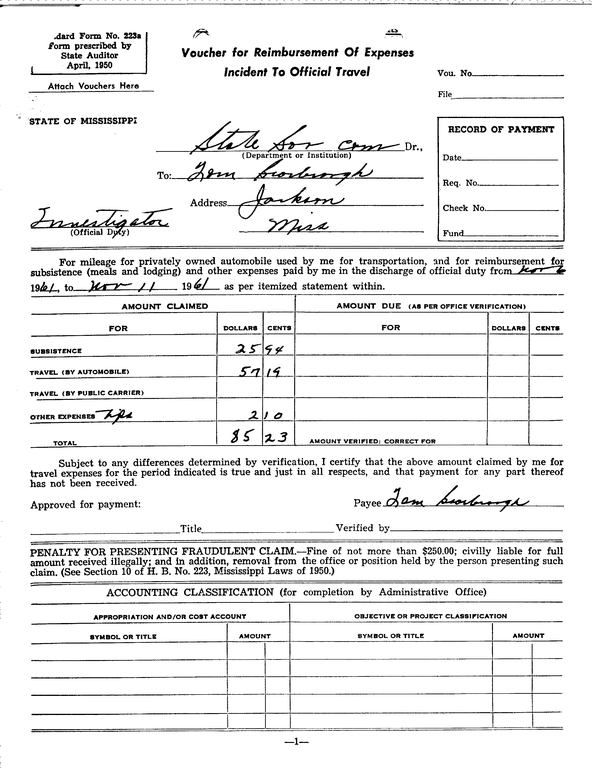 dard Form No. 223a
Form prescribed by
State Auditor
April, 1950
Attach Vouchers Here
Voucher for Reimbursement Of Expenses
Incident To Official Travel
Vou. No.
File
STATE OF MISSISSIPPI
State Sov com Dr.,
(Department or Institution)
To: Tom Scarbrough
Address Jackson
Miss
Investigator
(Official Duty)
RECORD OF PAYMENT
Date
Req. No.
Check No.
Fund
For mileage for privately owned automobile used by me for transportation, and for reimbursement for
subsistence (meals and lodging) and other expenses paid by me in the discharge of official duty from Nov 6
1961, to Nov 11 1961 as per itemized statement within.
AMOUNT CLAIMED AMOUNT DUE (AS PER OFFICE VERIFICATION)
FOR DOLLARS CENTS FOR DOLLARS CENTS
SUBSISTENCE 25 94
TRAVEL (BY AUTOMOBILE) 57 19
TRAVEL (BY PUBLIC CARRIER)
OTHER EXPENSES Tips 2 10
TOTAL 85 23 AMOUNT VERIFIED: CORRECT FOR
Subject to any differences determined by verification, I certify that the above amount claimed by me for
travel expenses for the period indicated is true and just in all respects, and that payment for any part thereof
has not been received.
Approved for payment: Payee Tom Scarbrough
Title Verified by
PENALTY FOR PRESENTING FRAUDULENT CLAIM.—Fine of not more than $250.00; civilly liable for full
amount received illegally; and in addition, removal from the office or position held by the person presenting such
claim. (See Section 10 of H. B. No. 223, Mississippi Laws of 1950.)
ACCOUNTING CLASSIFICATION (for completion by Administrative Office)
APPROPRIATION AND/OR COST ACCOUNT OBJECTIVE OR PROJECT CLASSIFICATION
SYMBOL OR TITLE AMOUNT SYMBOL OR TITLE AMOUNT
—1—